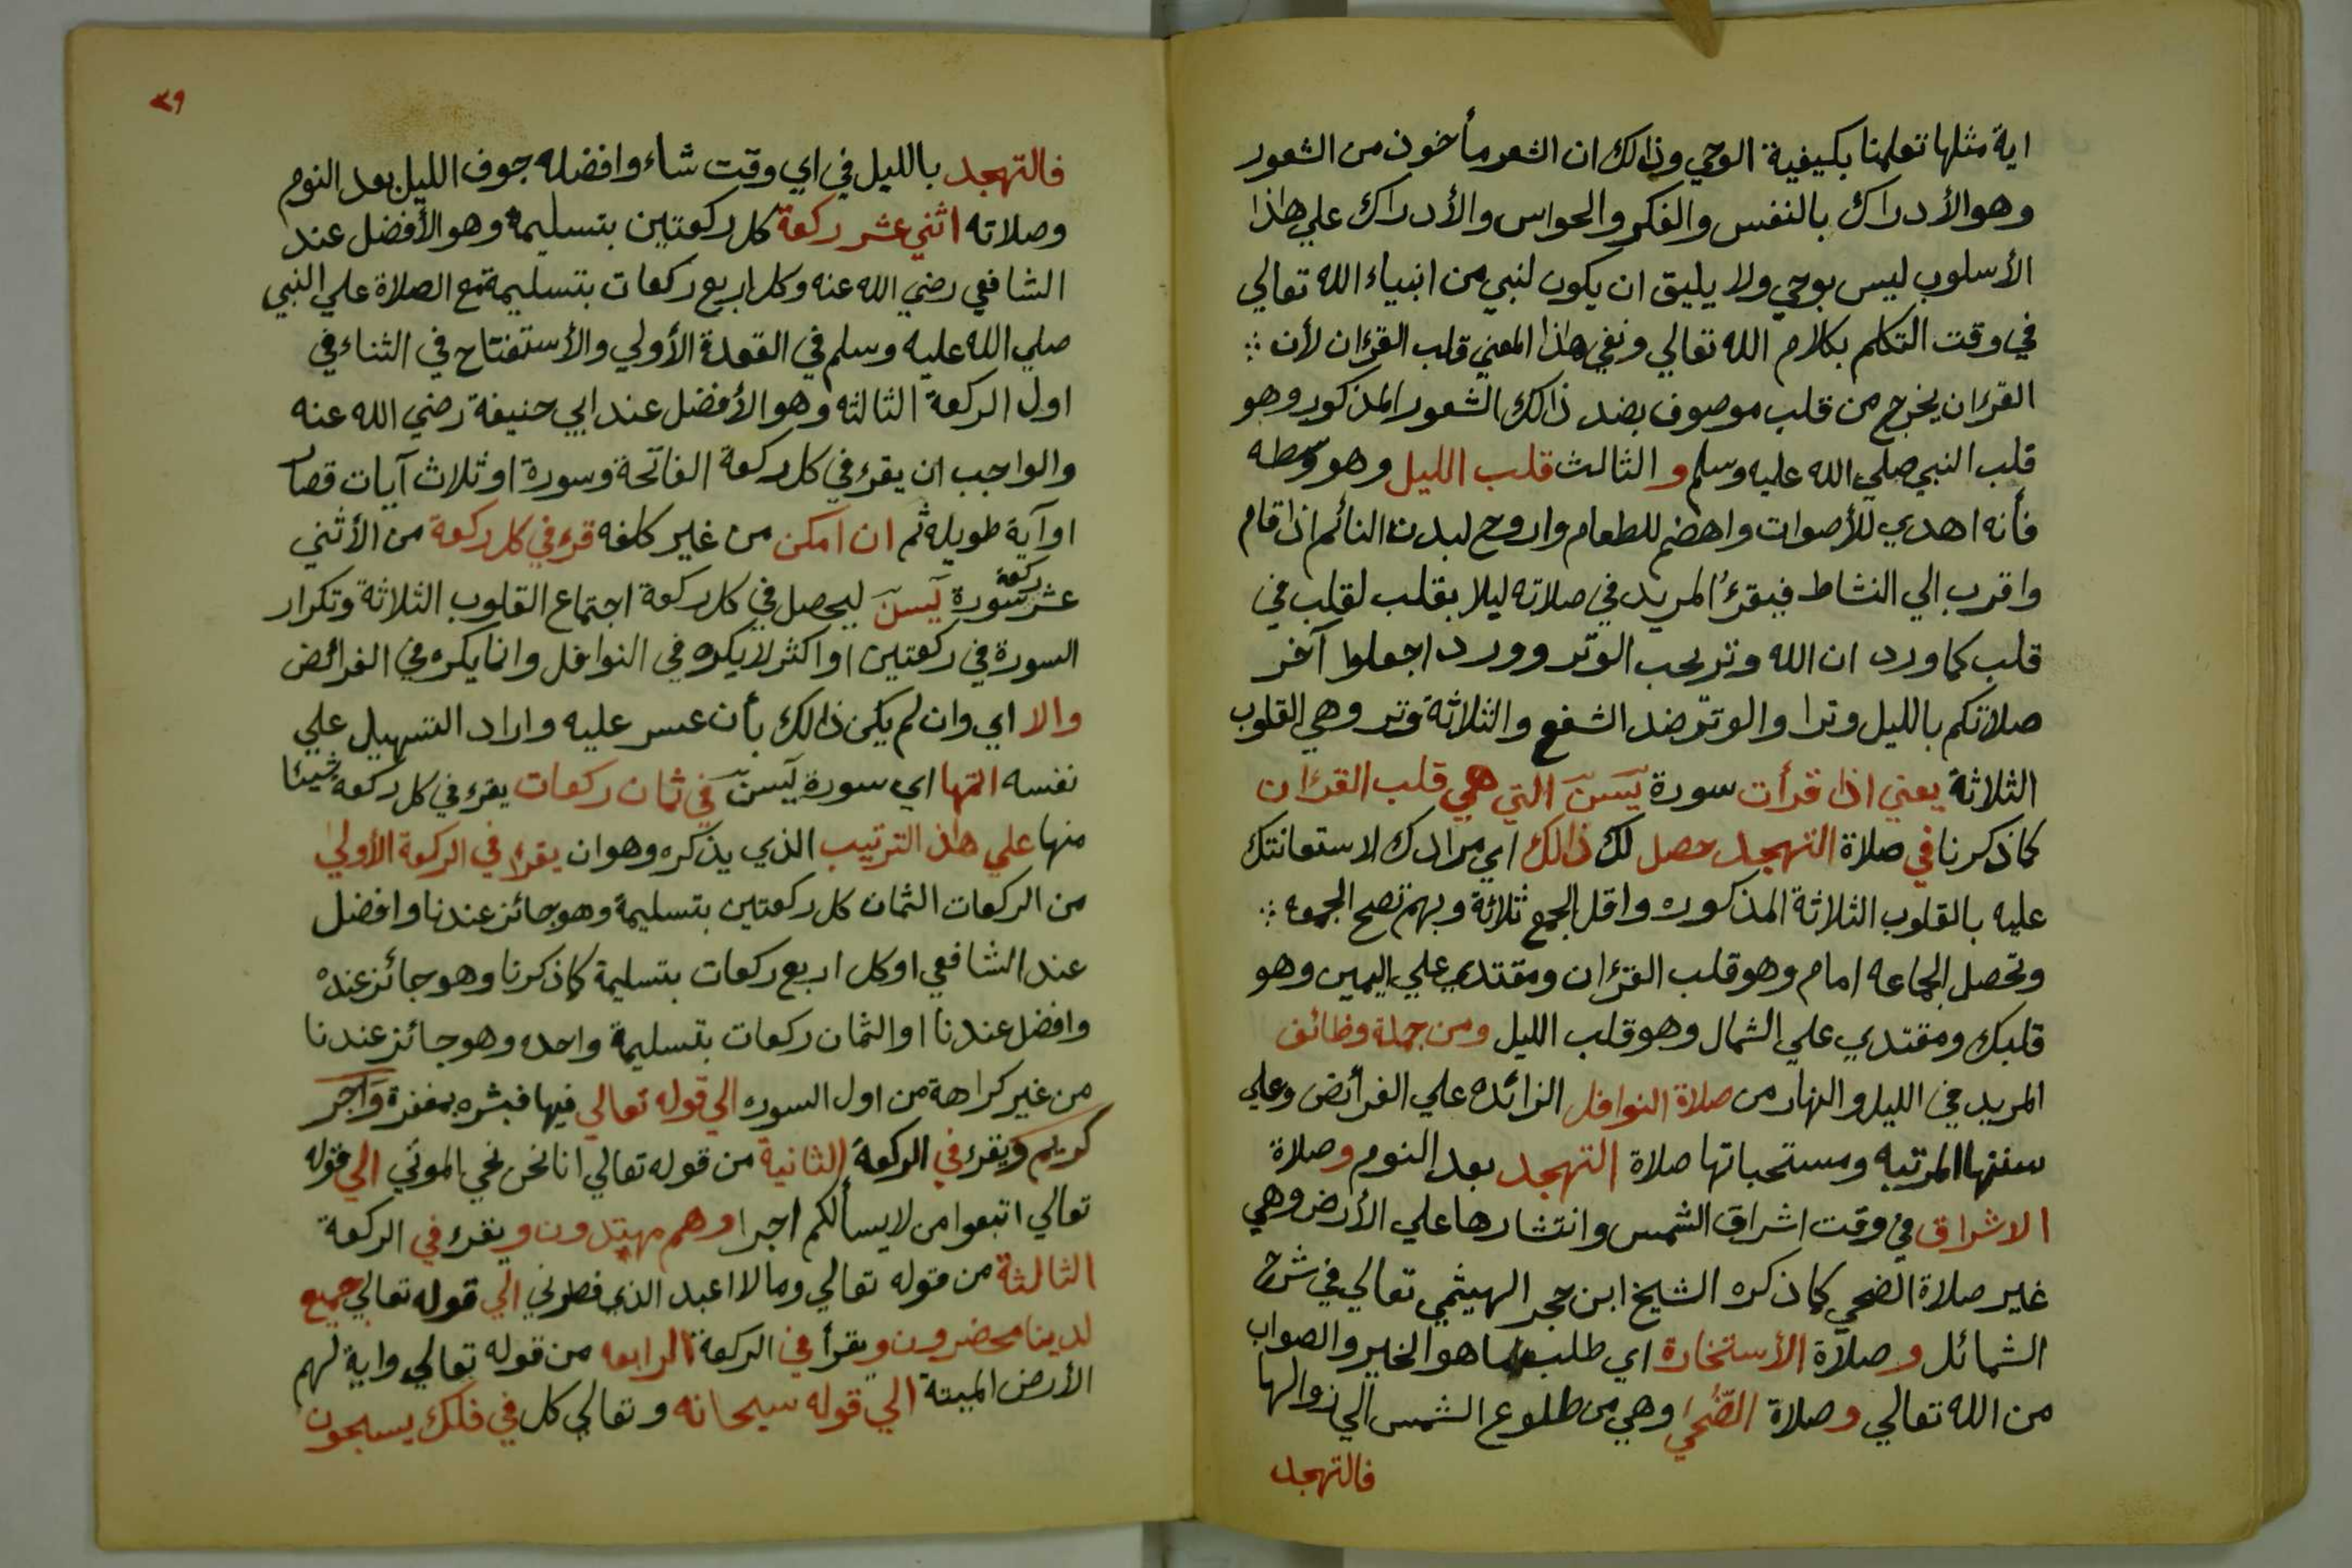 اية مثلها تعلمنا بكيفية الوحي وذالك ان الشعر مأخوذ من الشعور
وهو الأدراك بالنفس والفكر والحواس والأدراك علي هاذا
الأسلوب ليس بوحي ولا يليق ان يكون لنبي من انبياء الله تعالي
في وقت التكلم بكلام الله تعالي ونفي هاذا المعني قلب القرءان لأن
القرءان يخرج من قلب موصوف بضد ذالك الشعور المذكور وهو
قلب النبي صلي الله عليه وسلم و الثالث قلب الليل وهو وسطه
فأنه اهدي للأصوات واهضم للطعام واروح لبدن النائم اذا قام
واقرب الي النشاط فيقرءُ المريد في صلاته ليلا بقلب لقلب في
قلب كما ورد ان الله وتر يحب الوتر وورد اجعلوا آخر
صلاتكم بالليل وترا والوتر ضد الشفع والثلاثة وتر وهي القلوب
الثلاثة يعني اذا قرأت سورة يٓسٓ التي هي قلب القرءان
كما ذكرنا في صلاة التهجد حصل لك ذالك اي مرادك لاستعانتك
عليه بالقلوب الثلاثة المذكوره واقل الجمع ثلاثة وبهم تصح الجمعه
وتحصل الجماعه امام وهو قلب القرءان ومقتدي علي اليمين وهو
قلبك ومقتدي علي الشمال وهو قلب الليل ومن جملة وظائف
المريد في الليل والنهار من صلاة النوافل الزائده علي الفرائض وعلي
سننها المرتبه ومستحباتها صلاة التهجد بعد النوم وصلاة
الاشراق في وقت اشراق الشمس وانتشارها علي الأرض وهي
غير صلاة الضحي كما ذكره الشيخ ابن حجر الهيثمي تعالي في شرح
الشمائل و صلاة الأستخارة اي طلب ما هو الخير والصواب
من الله تعالي وصلاة الضُّحي وهي من طلوع الشمس الي زوالها
فالتهجد
٣٩
فالتهجد بالليل في اي وقت شاء وافضله جوف الليل بعد النوم
وصلاته اثني عشر ركعة كل ركعتين بتسليمة وهو الأفضل عند
الشافعي رضي الله عنه وكل اربع ركعات بتسليمة مع الصلاة علي النبي
صلي الله عليه وسلم في القعدة الأولي والأستفتاح في الثناء في
اول الركعة الثالثه وهو الأفضل عند ابي حنيفة رضي الله عنه
والواجب ان يقرء في كل ركعة الفاتحة وسورة او ثلاث آيات قصار
او آية طويله ثم ان امكن من غير كلفه قرء في كل ركعة من الأثني
عشر ركعة سورة يٓسٓ ليحصل في كل ركعة اجتماع القلوب الثلاثة وتكرار
السورة في ركعتين او اكثر لا يكره في النوافل وانما يكره في الفرائض
والا اي وان لم يكن ذالك بأن عسر عليه واراد التسهيل علي
نفسه اتمها اي سورة يٓسٓ في ثمان ركعات يقرء في كل ركعة شيئا
منها علي هاذ الترتيب الذي يذكره وهو ان يقرا في الركعة الأولي
من الركعات الثمان كل ركعتين بتسليمة وهو جائز عندنا وافضل
عند الشافعي او كل اربع ركعات بتسليمة كما ذكرنا وهو جائز عنده
وافضل عندنا او الثمان ركعات بتسليمة واحده وهو جائز عندنا
من غير كراهة من اول السوره الي قوله تعالي فيها فبشره بمغفرة وَاجر
كريم ويقرء في الركعة الثانية من قوله تعالي انا نحن نحي الموتي الي قوله
تعالي اتبعوا من لا يسألكم اجرا وهم مهتدون و يقرء في الركعة
الثالثة من قوله تعالي وما لا اعبد الذي فطرني الي قوله تعالي جميع
لدينا محضرون ويقرأ في الركعة الرابعه من قوله تعالي واية لهم
الأرض الميتة الي قوله سبحانه وتعالي كل في فلك يسبحون